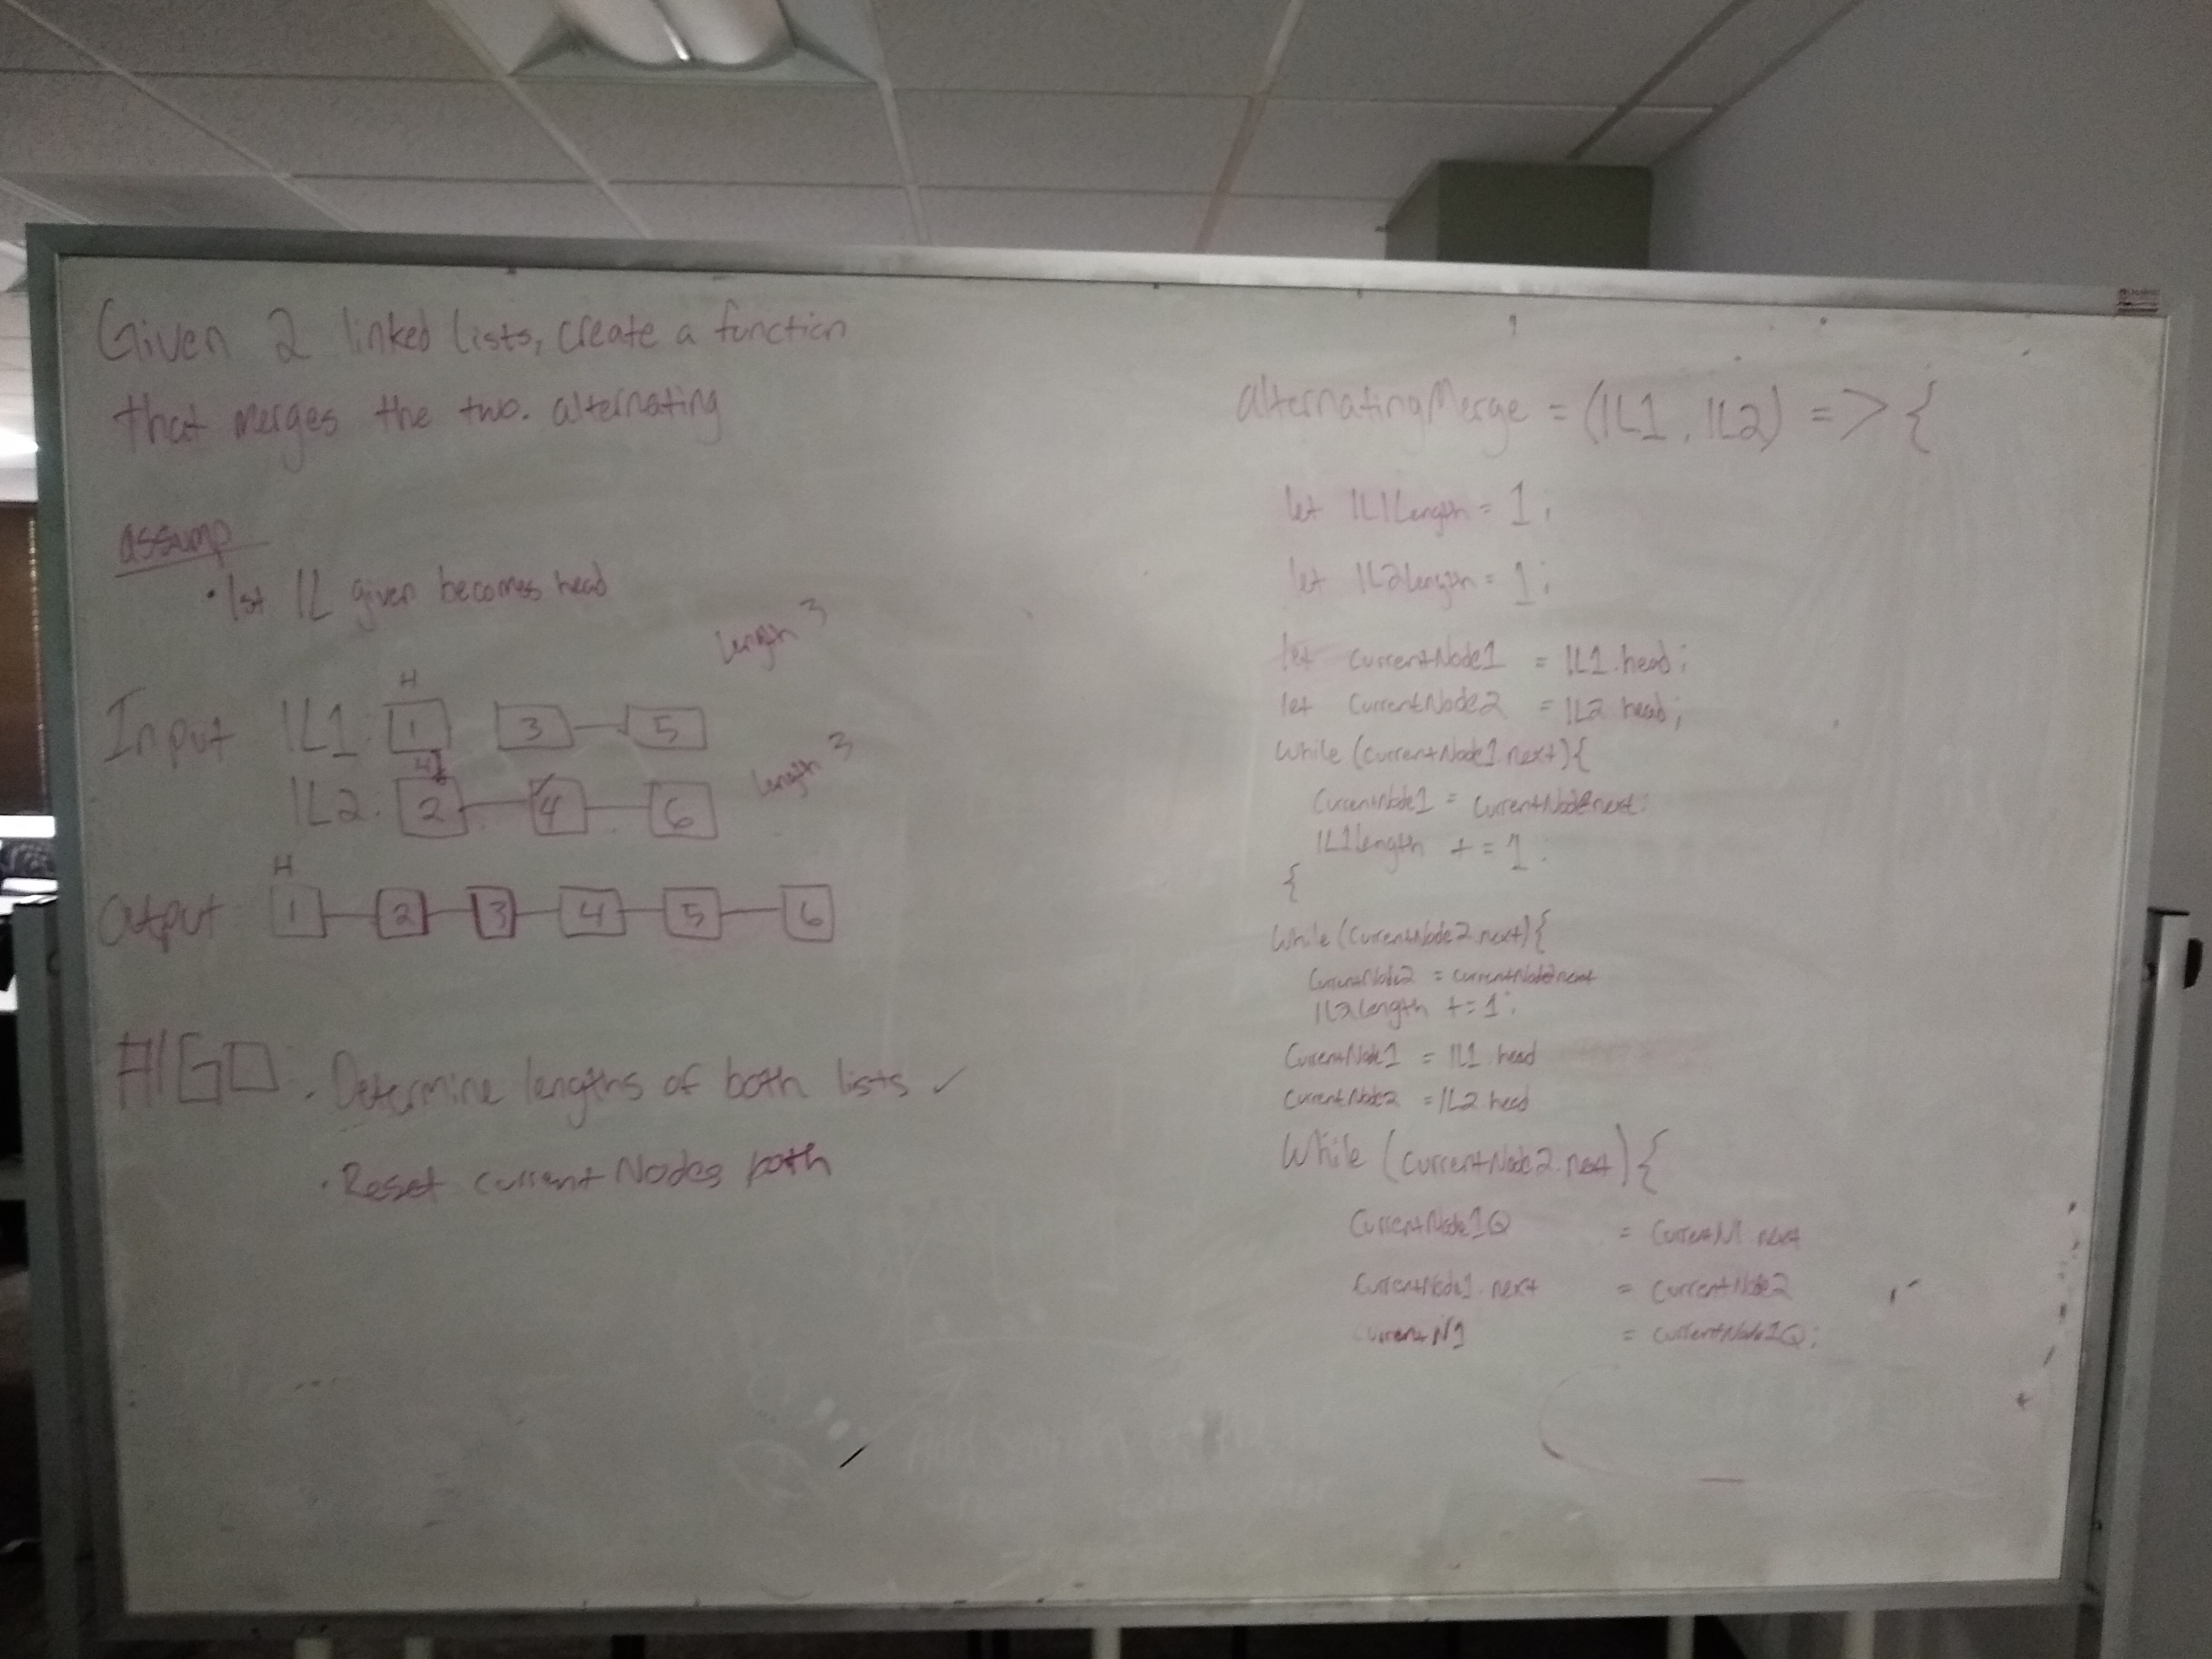 Given 2 linked lists, create a function
that merges the two. alternating
assump
• 1st lL given becomes head
length 3
H
Input lL1. 1 3 5
H
length 3
lL2. 2 4 6
H
Output 1 2 3 4 5 6
AlGO. • Determine lengths of both lists ✓
• Reset currentNodes both
alternatingMerge = (lL1, lL2) => {
let lL1Length = 1;
let lL2Length = 1;
let currentNode1 = lL1.head;
let currentNode2 = lL2.head;
while (currentNode1.next){
currentNode1 = currentNode.next;
lL1length += 1;
{
while (currentNode2.next){
currentNode2 = currentNode2next
lL2length += 1;
currentNode1 = lL1.head
currentNode2 = lL2.head
While (currentNode2.next) {
currentNode1Q = currentN1.next
currentNode1.next = currentNode2
currentN1 = currentNode1Q;